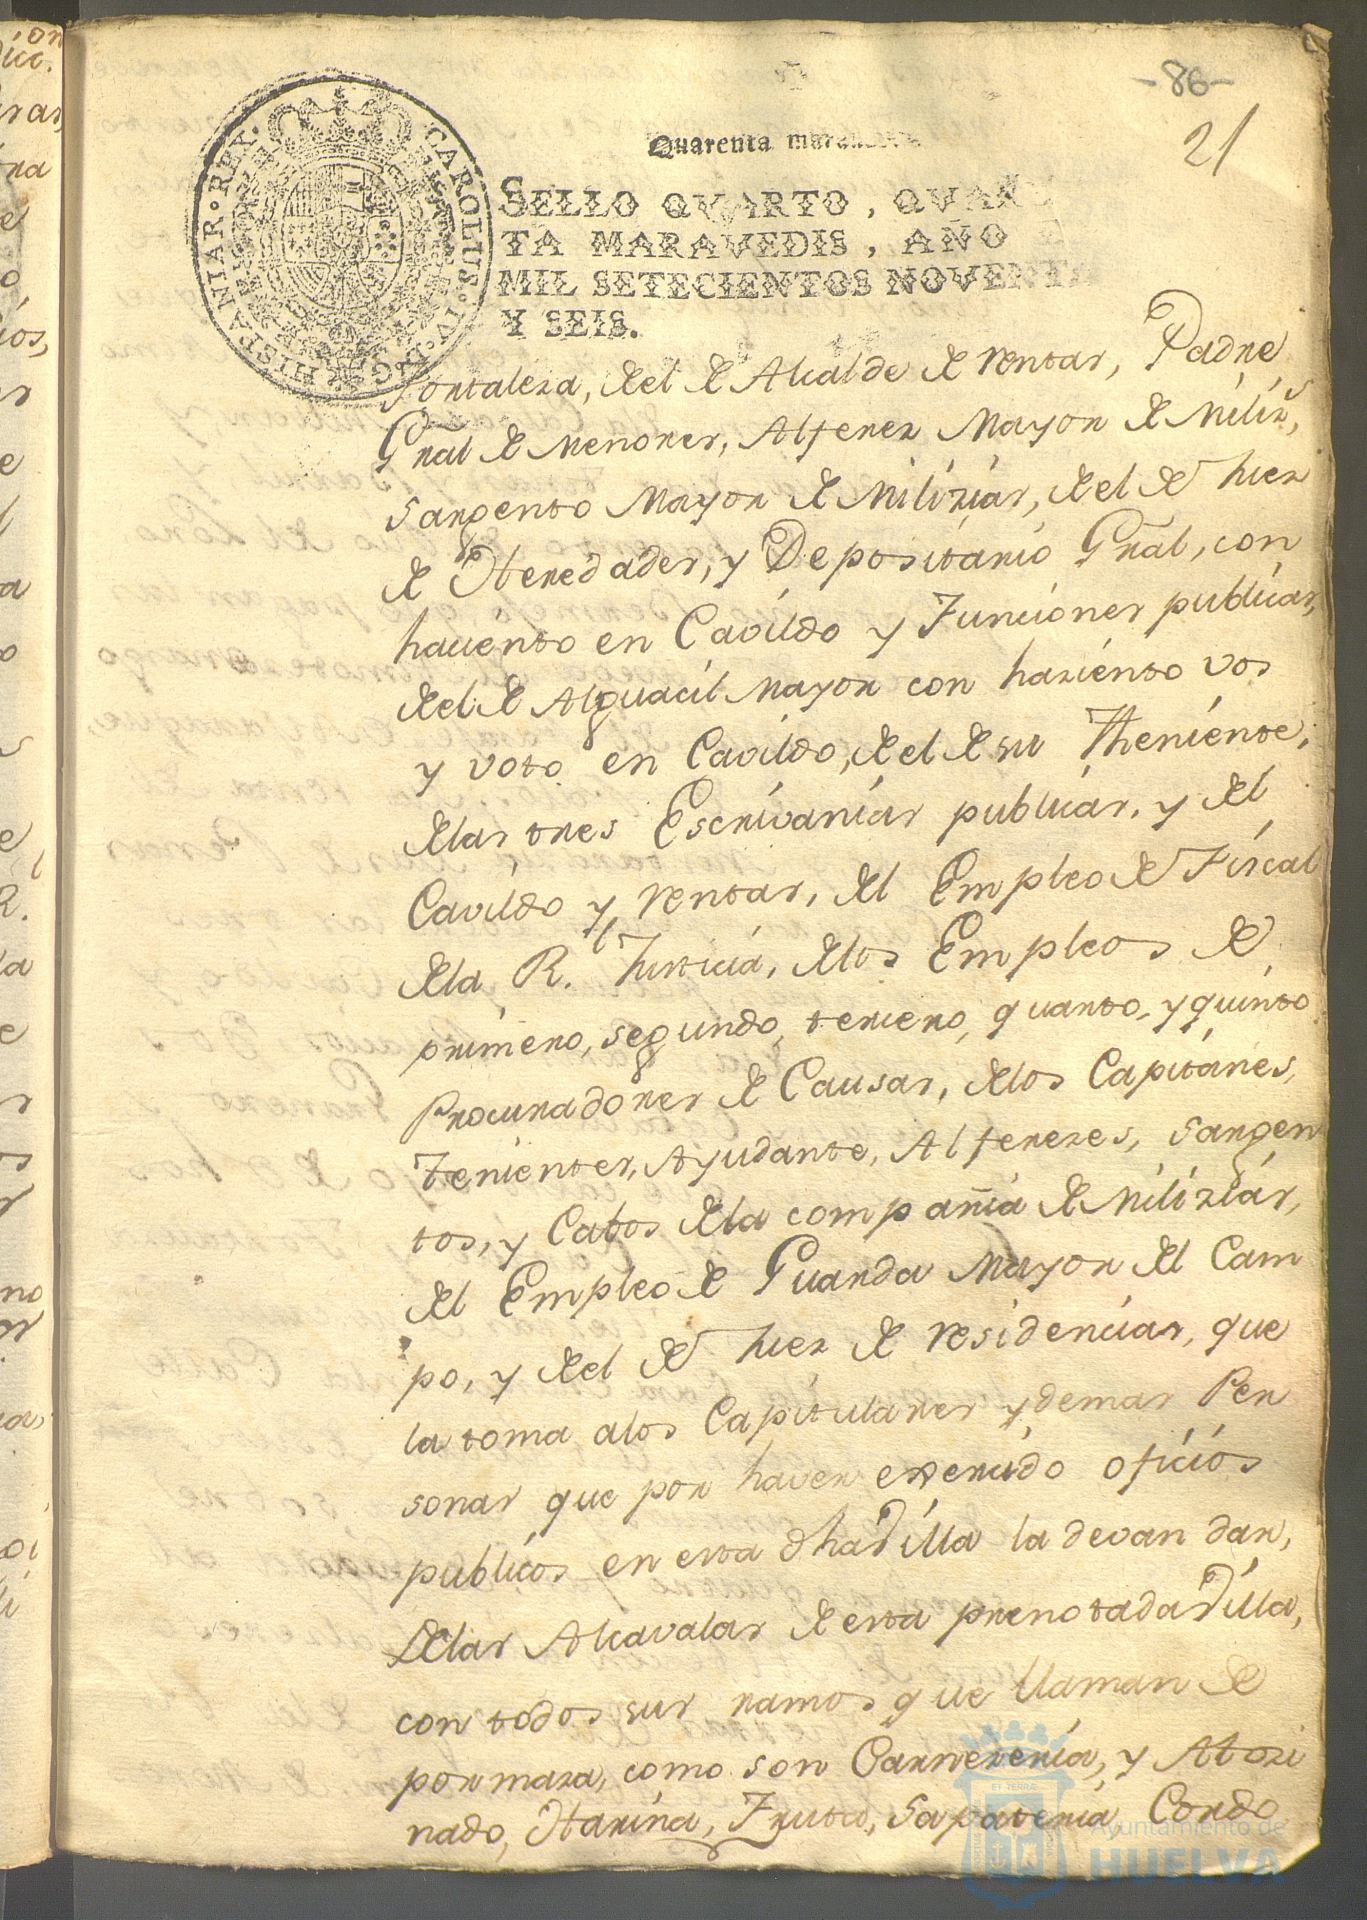 -86-
21
Quarenta maravedis
SELLO QVARTO, QVAREN
TA MARAVEDIS, AÑO
MIL SETECIENTOS NOVENTA
Y SEIS.
CAROLUS · IV · D · G · HISPANIAR · REX ·
fortaleza, del de Alcalde de rentas, Padre
Gral de menores, Alferez Mayor de Milizs,
Sargento Mayor de Milizias, del de Juez
de Heredades, y Depositario Gral, con
haciento en Cavildo y Funciones publicas,
del de Alguacil Mayor con haziento vos
y voto en Cavildo, del de su Theniente,
delas tres Escrivanias publicas, y del
Cavildo y rentas, del Empleo de Fiscal
dela R.l Justicia, delos Empleos de
primero, segundo, tercero, quarto, y quinto
Procuradores de Causas, delos Capitanes,
Tenientes, Ayudante, Alferezes, Sargen
tos, y Cabos dela compañia de Milizias,
del Empleo de Guarda Mayor del Cam
po, y del de Juez de residencias, que
la toma alos Capitulares y demas Per
sonas que por haver exercido oficios
publicos en esta dha Villa la devan dar,
delas Alcavalas de esta prenotada Villa,
con todos sus ramos que llaman de
por maza, como son Carnezeria, y Atozi
nado, Harina, Fruto, Sapateria, Cordo
Ayuntamiento de
HUELVA